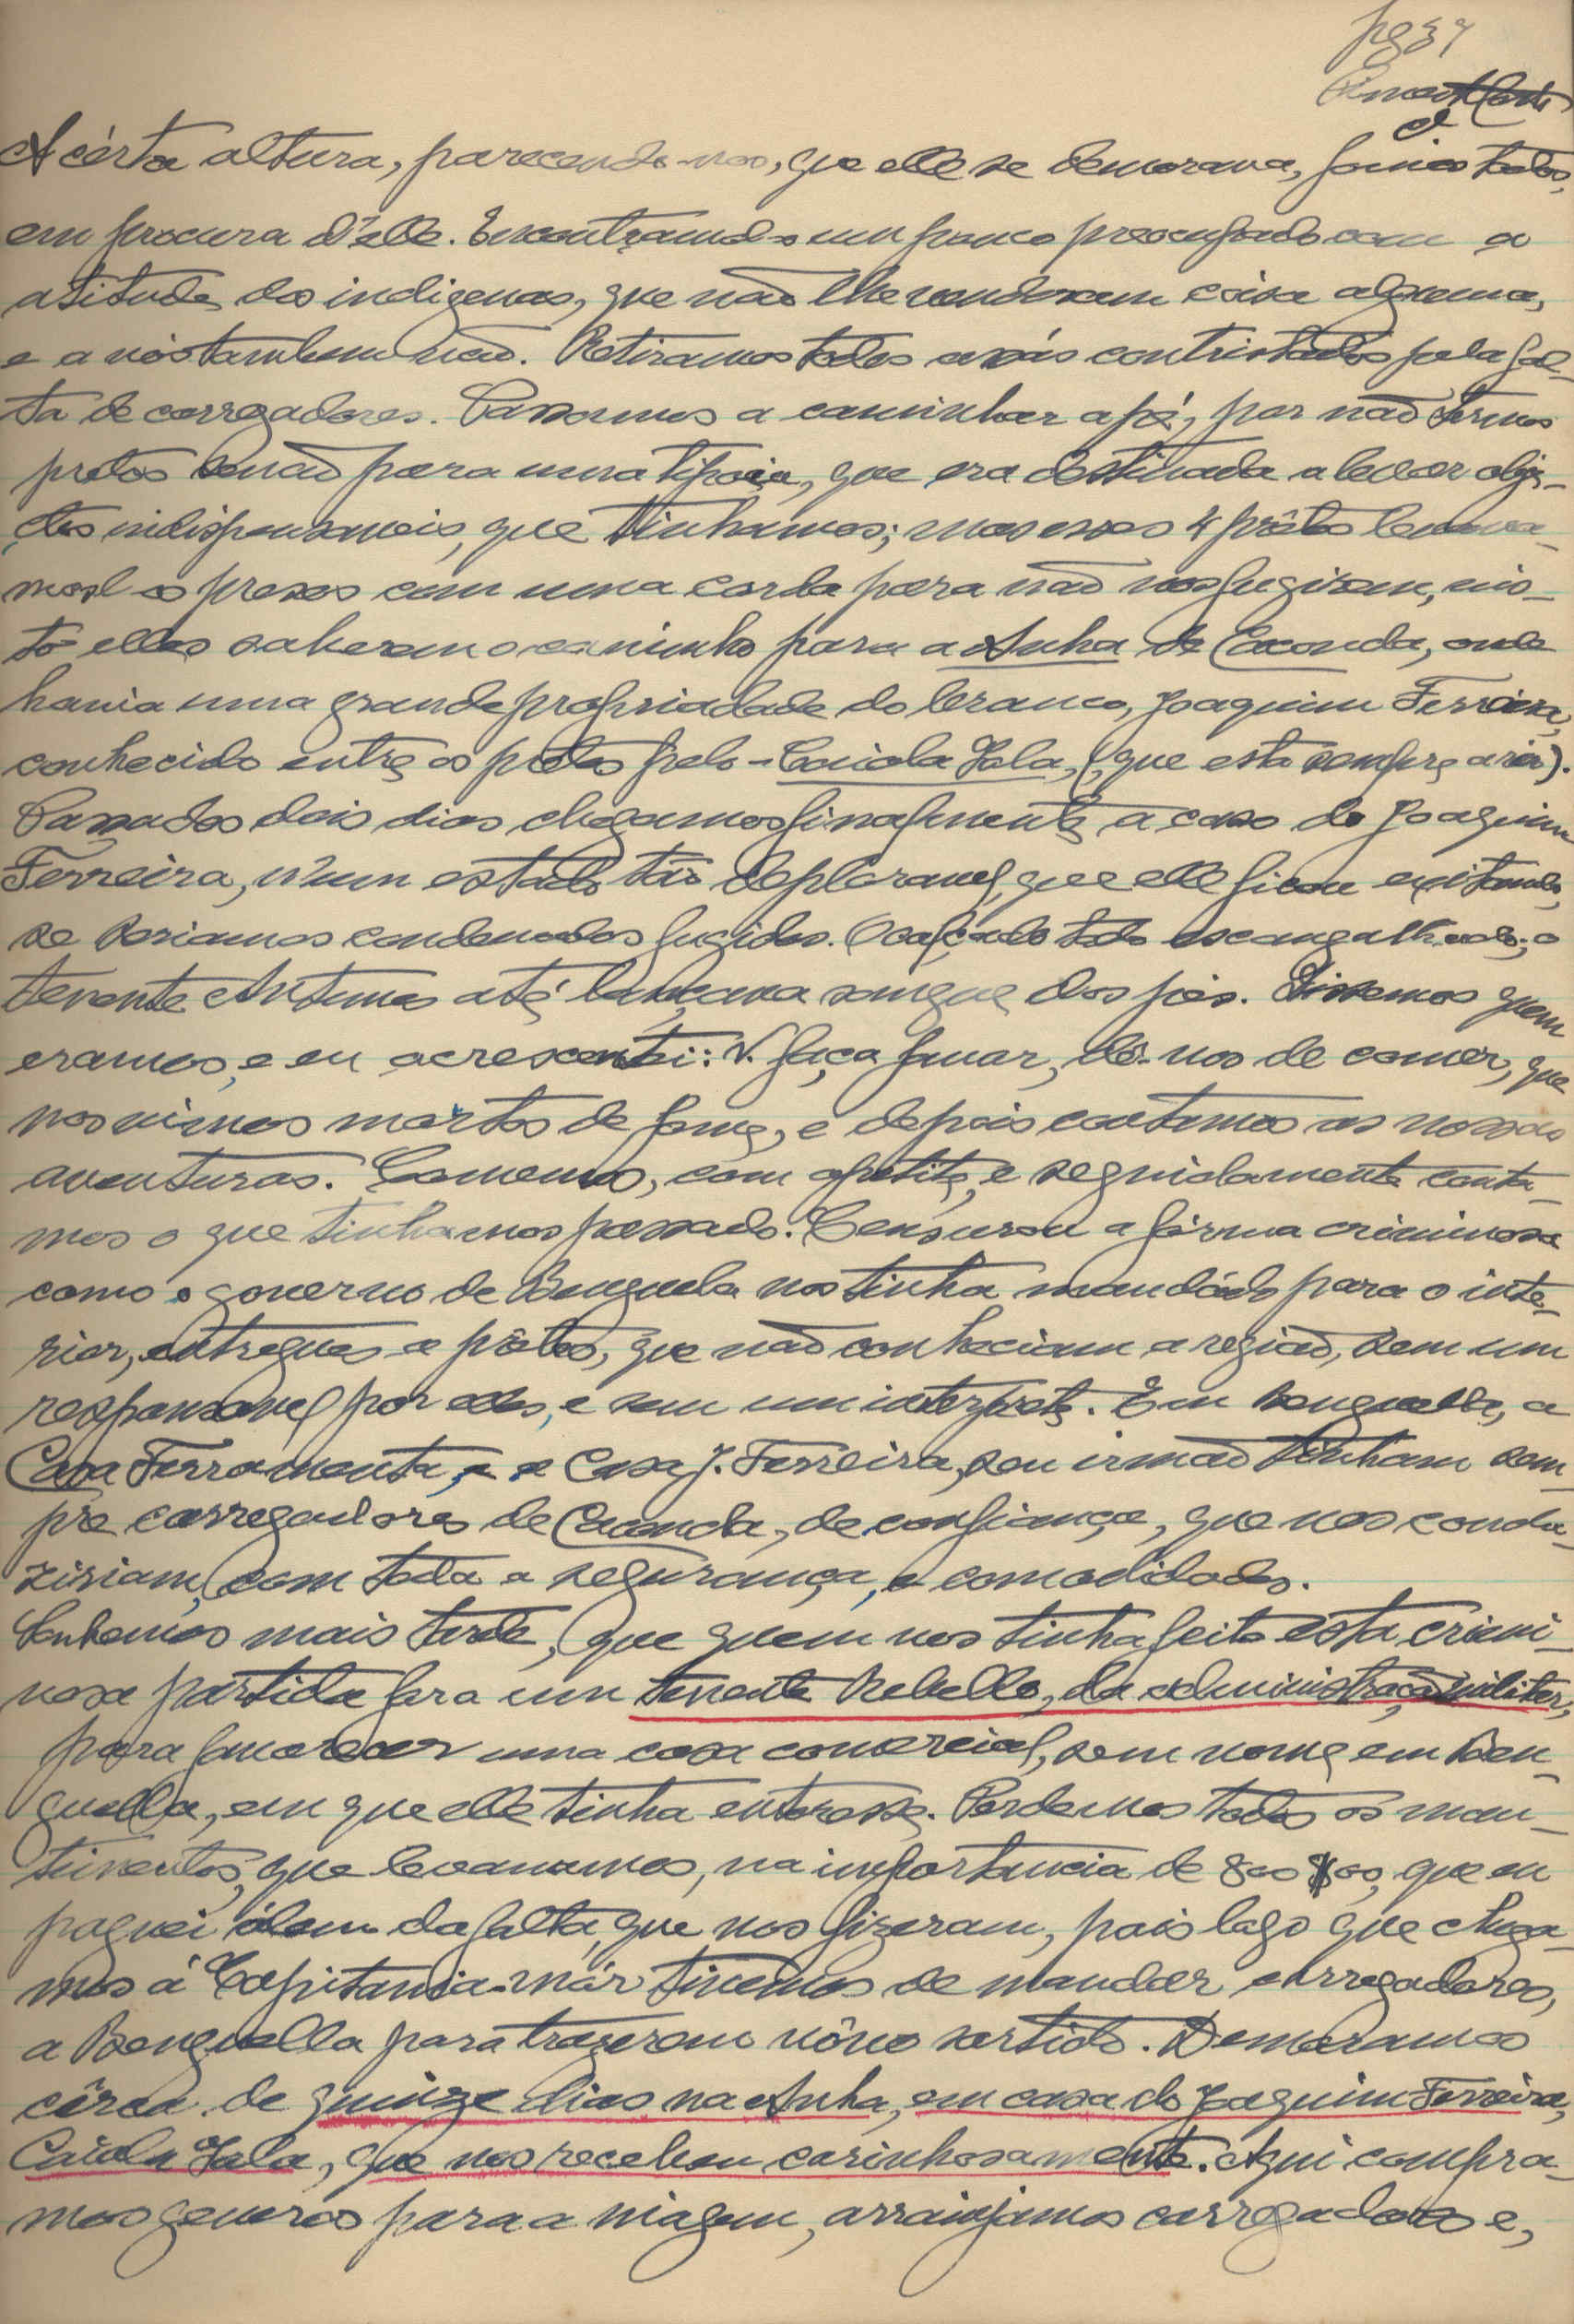 pg 37
A cérta altura, parecendo-nos, que elle se demorava, fomos todos,
em procura d'elle. Encontramol-o um pouco preocupado com a
atitude dos indigenas, que não lhe venderam coisa alguma,
e a nós tambem não. Retiramos todos contristados pela fal-
ta de carregadores. Passamos a caminhar a pé, por não termos
pretos senão para uma tipoia, que era destinada a levar obje-
ctos indispensaveis, que tinhamos; mas esses 4 prêtos levava-
mol-os presos com uma corda para não nos fugirem, vis-
to elles saberem o caminho para a Anha de Caconda, onde
havia uma grande propriadade do branco, Joaquim Ferreira,
conhecido entre os pretos pelo - Caiola Jala, (que esta sempre a rir).
Passados dois dias chegamos finalmente a casa do Joaquim
Ferreira, n'um estado tão deploravel, que elle ficou exitando,
se seriamos condenados fugidos. O calçado todo escangalhado; o
tenente Antunes até lançava sangue dos pés. Dissemos quem
eramos, e eu acrescentei: V. faça favar, dê-nos de comer, que
nos vimos mortos de fome, e depois contamos as nossas
aventuras. Comemos, com apetite, e seguidamente conta-
mos o que tinhamos passado. Censurou a fórma criminosa
como o governo de Benguela nos tinha mandádo para o inte-
rior, entregues a prêtos, que não conheciam a região, sem um
responsavel por eles, e sem um interprete. Em Benguella, a
Casa Ferramenta, e a Casa J. Ferreira, seu irmão tinham sem-
pre carregadores de Caconda, de confiança, que nos condu-
ziriam, com toda a segurança, e comodidades.
Soubemos mais tarde, que quem nos tinha feito esta crimi-
nosa partida fora um tenente Rebello, da administração militar,
para favorecer uma casa comercial, sem nome em Ben-
guella, em que elle tinha enteresse. Perdemos todos os man-
timentos, que levavamos, na importancia de 800$00, que eu
paguei álem da falta, que nos fizeram, pois logo que chega-
mos á Capitania-mór tivemos de mandar carregadores,
a Benguella para trazerem nôvo sortido. Demoramos
cêrca de quinze dias na Anha, em casa do Joaquim Ferreira,
Caiola Jala, que nos recebeu carinhosamente. Aqui compra-
mos generos para a viagem, arranjamos carregadores e,